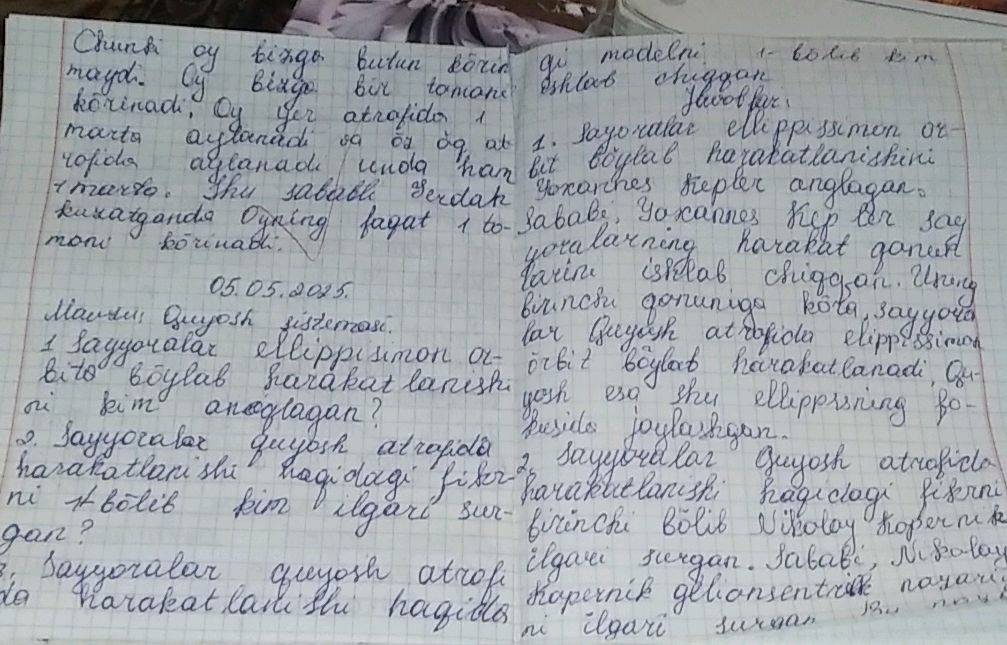 Chunki oy bizga butun körin
maydi. Oy bizga bir tomani
körinadi. Oy yer atrofida 1
marta aylanadi va öz öq at
rofida aylanadi unda ham
1 marta. Shu sababli Yerdan
kuzatganda Oyning faqat 1 to-
moni körinadi.
05.05.2025.
Mavzu: Quyosh sistemasi.
1 Sayyoralar ellippisimon or-
bita böylab harakatlanishi
ni kim anglagan?
2. Sayyoralar quyosh atrofida
harakatlanishi haqidagi fikr-
ni 1 bölib kim ilgari sur-
gan?
3. Sayyoralar quyosh atrofi
da harakatlanishi haqida
gi modelni 1- bölib kim
ishlab chiqqan
Javoblar:
1. Sayoralar ellippissimon or-
bit böylab harakatlanishini
Yoxannes Kepler anglagan.
Sababi, Yoxannes Kepler say
yoralarning harakat qonun
larini ishlab chiqqan. Uning
birinchi qonuniga köra, sayyora
lar Quyosh atrofida elippissimon
örbit böylab harakatlanadi, Qu-
yosh esa shu ellippisning fo-
kusida joylashgan.
2. Sayyoralar Quyosh atrofida
harakatlanishi haqidagi fikrni
birinchi bölib Nikolay Kopernik
ilgari surgan. Sababi, Nikolay
Kapernik geliansentrik nazari
ni ilgari surgan